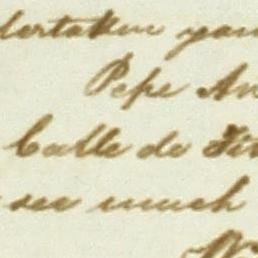 dertaken your
Pepe An
Calle de
see much